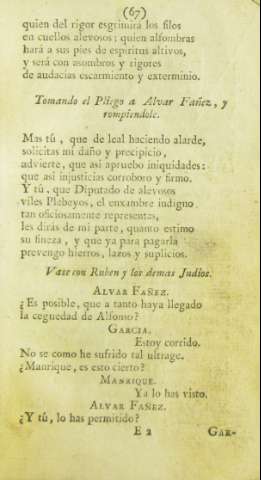 (67)
quien del rigor esgrimirá los filos
en cuellos alevosos; quien alfombras
hará a sus pies de espiritus altivos,
y será con asombros y rigores
de audacias escarmiento y exterminio.
Tomando el Pliego a Alvar Fañez, y
rompiendole.
Mas tú, que de leal haciendo alarde,
solicitas mi daño y precipicio,
advierte, que asi apruebo iniquidades:
que asi injusticias corroboro y firmo.
Y tú, que Diputado de alevosos
viles Plebeyos, el enxambre indigno
tan oficiosamente representas,
les dirás de mi parte, quanto estimo
su fineza, y que ya para pagarla
prevengo hierros, lazos y suplicios.
Vase con Ruben y los demas Judíos.
ALVAR FAÑEZ.
¿Es posible, que a tanto haya llegado
la ceguedad de Alfonso?
GARCIA.
Estoy corrido.
No se como he sufrido tal ultrage.
¿Manrique, es esto cierto?
MANRIQUE.
Ya lo has visto.
ALVAR FAÑEZ.
¿Y tú, lo has permitido?
E 2 GAR-